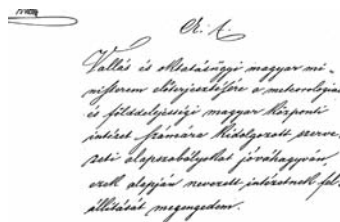 Vallás és oktatásügyi magyar mi-
nisterem előterjesztésére a meteorologiai
és földdelejességi magyar központi
intézet számára kidolgozott szerve-
zeti alapszabályokat jóváhagyván,
ezek alapján nevezett intézetnek fel-
állítását megengedem.